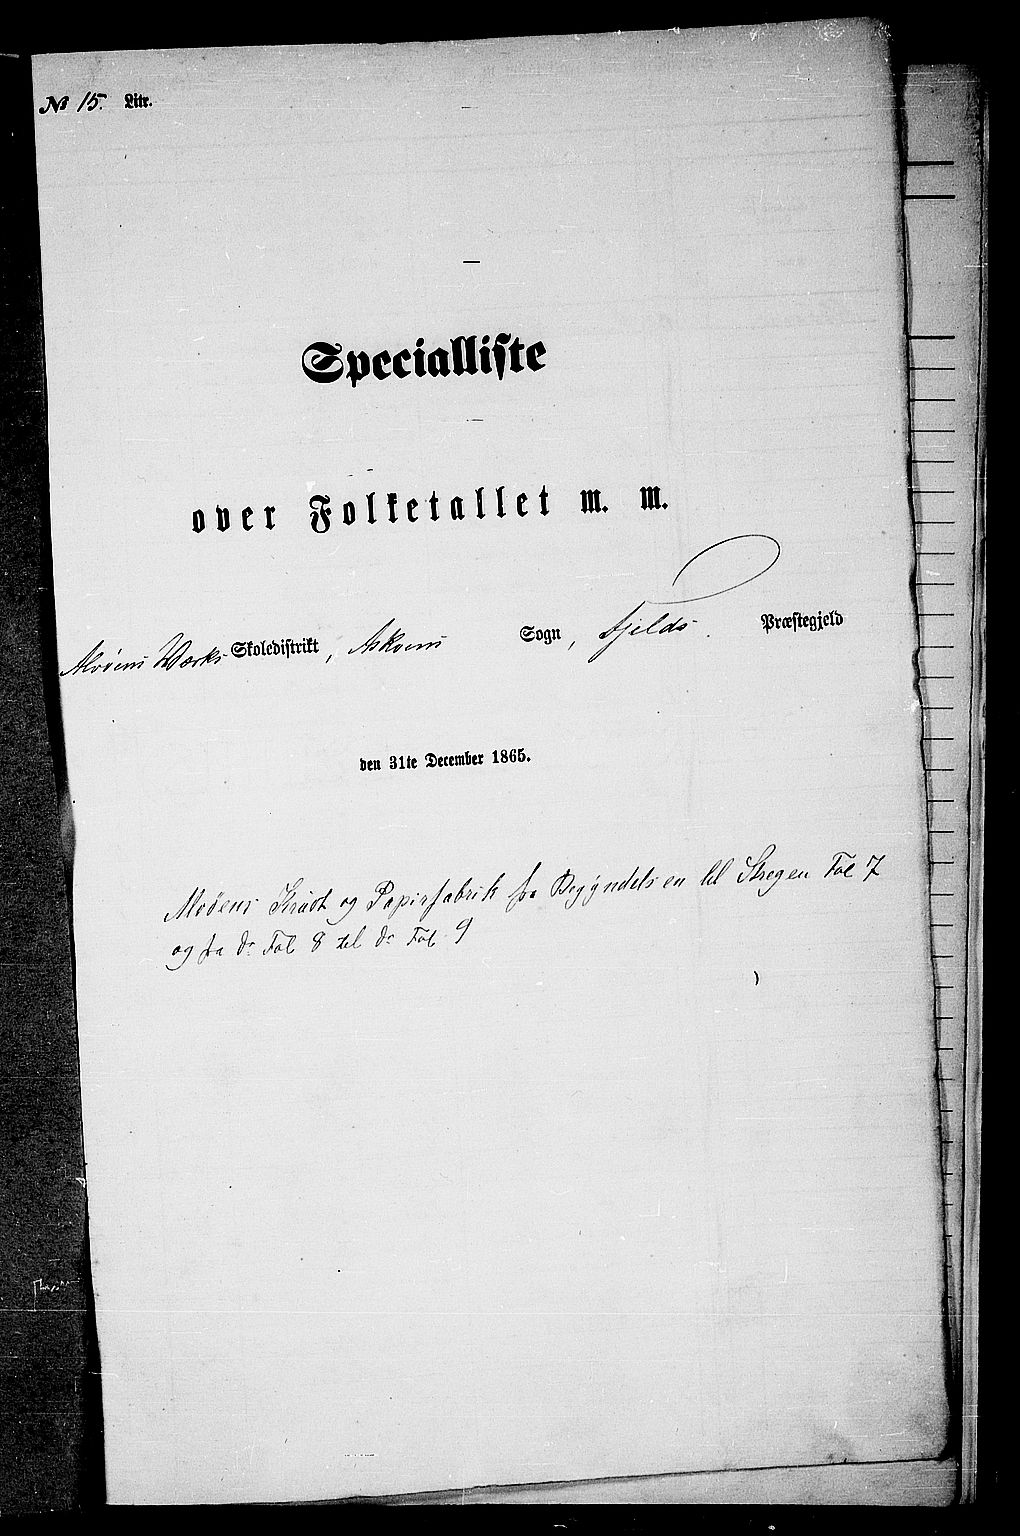 № 15. Litr.
Specialliste
over Folketallet m. m.
Alvøens Værks Skoledistrikt, Askøens Sogn, Fjelds Præstegjeld
den 31te December 1865.
Alvøens Krudt og Papirfabrik fra Begyndelsen til Stregen Fol 7
og fra do Fol 8 til do Fol 9